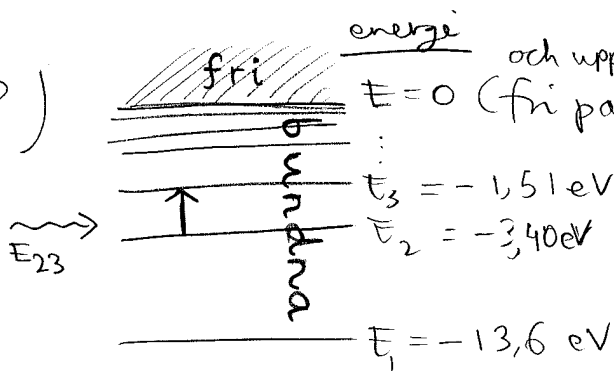 energi
fri
och upp
E = 0 (fri pa
bundna
E₃ = -1,51 eV
E₂ = -3,40 eV
E₂₃
E₁ = -13,6 eV